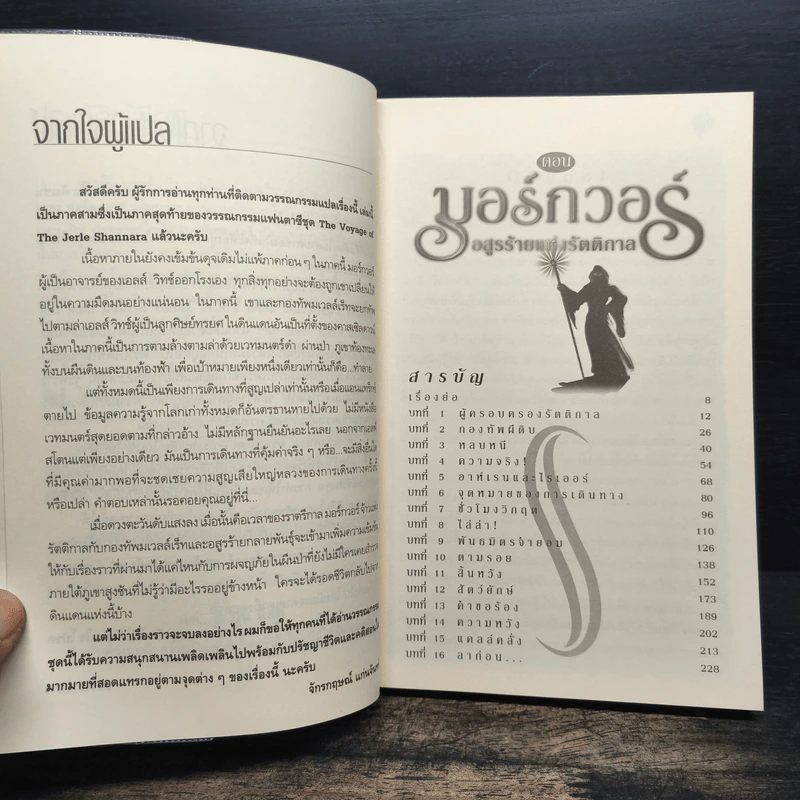 จากใจผู้แปล
สวัสดีครับ ผู้รักการอ่านทุกท่านที่ติดตามวรรณกรรมแปลเรื่องนี้ เล่มนี้
เป็นภาคสามซึ่งเป็นภาคสุดท้ายของวรรณกรรมแฟนตาซีชุด The Voyage of
The Jerle Shannara แล้วนะครับ
เนื้อหาภายในยังคงเข้มข้นดุจเดิมไม่แพ้ภาคก่อน ๆ ในภาคนี้ มอร์กวอร์
ผู้เป็นอาจารย์ของเอลส์ วิทช์ออกโรงเอง ทุกสิ่งทุกอย่างจะต้องถูกเขาเปลี่ยนให้
อยู่ในความมืดมนอย่างแน่นอน ในภาคนี้ เขาและกองทัพมเวลล์เร็ทจะยกทัพ
ไปตามล่าเอลส์ วิทช์ผู้เป็นลูกศิษย์ทรยศ ในดินแดนอันเป็นที่ตั้งของคาสเซิลดาวน์
เนื้อหาในภาคนี้เป็นการตามล้างตามล่าด้วยเวทมนตร์ดำ ผ่านป่า ภูเขาท้องทะเล
ทั้งบนผืนดินและบนท้องฟ้า เพื่อเป้าหมายเพียงหนึ่งเดียวเท่านั้นก็คือ...ทำลาย
แต่ทั้งหมดนี้เป็นเพียงการเดินทางที่สูญเปล่าเท่านั้นหรือเมื่อแอนแทร็กซ์
ตายไป ข้อมูลความรู้จากโลกเก่าทั้งหมดก็อันตรธานหายไปด้วย ไม่มีหนังสือ
เวทมนตร์สุดยอดตามที่กล่าวอ้าง ไม่มีหลักฐานยืนยันอะไรเลย นอกจากเอลฟ์
สโตนแต่เพียงอย่างเดียว มันเป็นการเดินทางที่คุ้มค่าจริง ๆ หรือ...จะมีสิ่งอื่นใด
ที่มีคุณค่ามากพอที่จะชดเชยความสูญเสียใหญ่หลวงของการเดินทางครั้งนี้
หรือเปล่า คำตอบเหล่านั้นรอคอยคุณอยู่ที่นี่...
เมื่อดวงตะวันดับแสงลง เมื่อนั้นคือเวลาของราตรีกาล มอร์กวอร์ จ้าวแห่ง
รัตติกาลกับกองทัพมเวลล์เร็ทและอสูรร้ายกลายพันธุ์จะเข้ามาเพิ่มความเข้มข้น
ให้กับเรื่องราวที่ผ่านมาได้แค่ไหนกับการผจญภัยในผืนป่าที่ยังไม่มีใครเคยสำรวจ
ภายใต้ภูเขาสูงชันที่ไม่รู้ว่ามีอะไรรออยู่ข้างหน้า ใครจะได้รอดชีวิตกลับไปจาก
ดินแดนแห่งนี้บ้าง
แต่ไม่ว่าเรื่องราวจะจบลงอย่างไร ผมก็ขอให้ทุกคนที่ได้อ่านวรรณกรรม
ชุดนี้ได้รับความสนุกสนานเพลิดเพลินไปพร้อมกับปรัชญาชีวิตและคติสอนใจ
มากมายที่สอดแทรกอยู่ตามจุดต่าง ๆ ของเรื่องนี้ นะครับ
จักรกฤษณ์ แก่นจันทร์
ตอน
มอร์กวอร์
อสูรร้ายแห่งรัตติกาล
สารบัญ
เรื่องย่อ 8
บทที่ 1 ผู้ครอบครองรัตติกาล 12
บทที่ 2 กองทัพผีดิบ 26
บทที่ 3 หลบหนี 40
บทที่ 4 ความจริง! 54
บทที่ 5 อาห์เรนและไรเออร์ 68
บทที่ 6 จุดหมายของการเดินทาง 80
บทที่ 7 ชั่วโมงวิกฤต 96
บทที่ 8 ไล่ล่า! 110
บทที่ 9 พันธมิตรจำยอม 126
บทที่ 10 ตามรอย 138
บทที่ 11 สิ้นหวัง 152
บทที่ 12 สัตว์ยักษ์ 173
บทที่ 13 คำขอร้อง 189
บทที่ 14 ความหวัง 202
บทที่ 15 แคลล์คลั่ง 213
บทที่ 16 ลาก่อน... 228